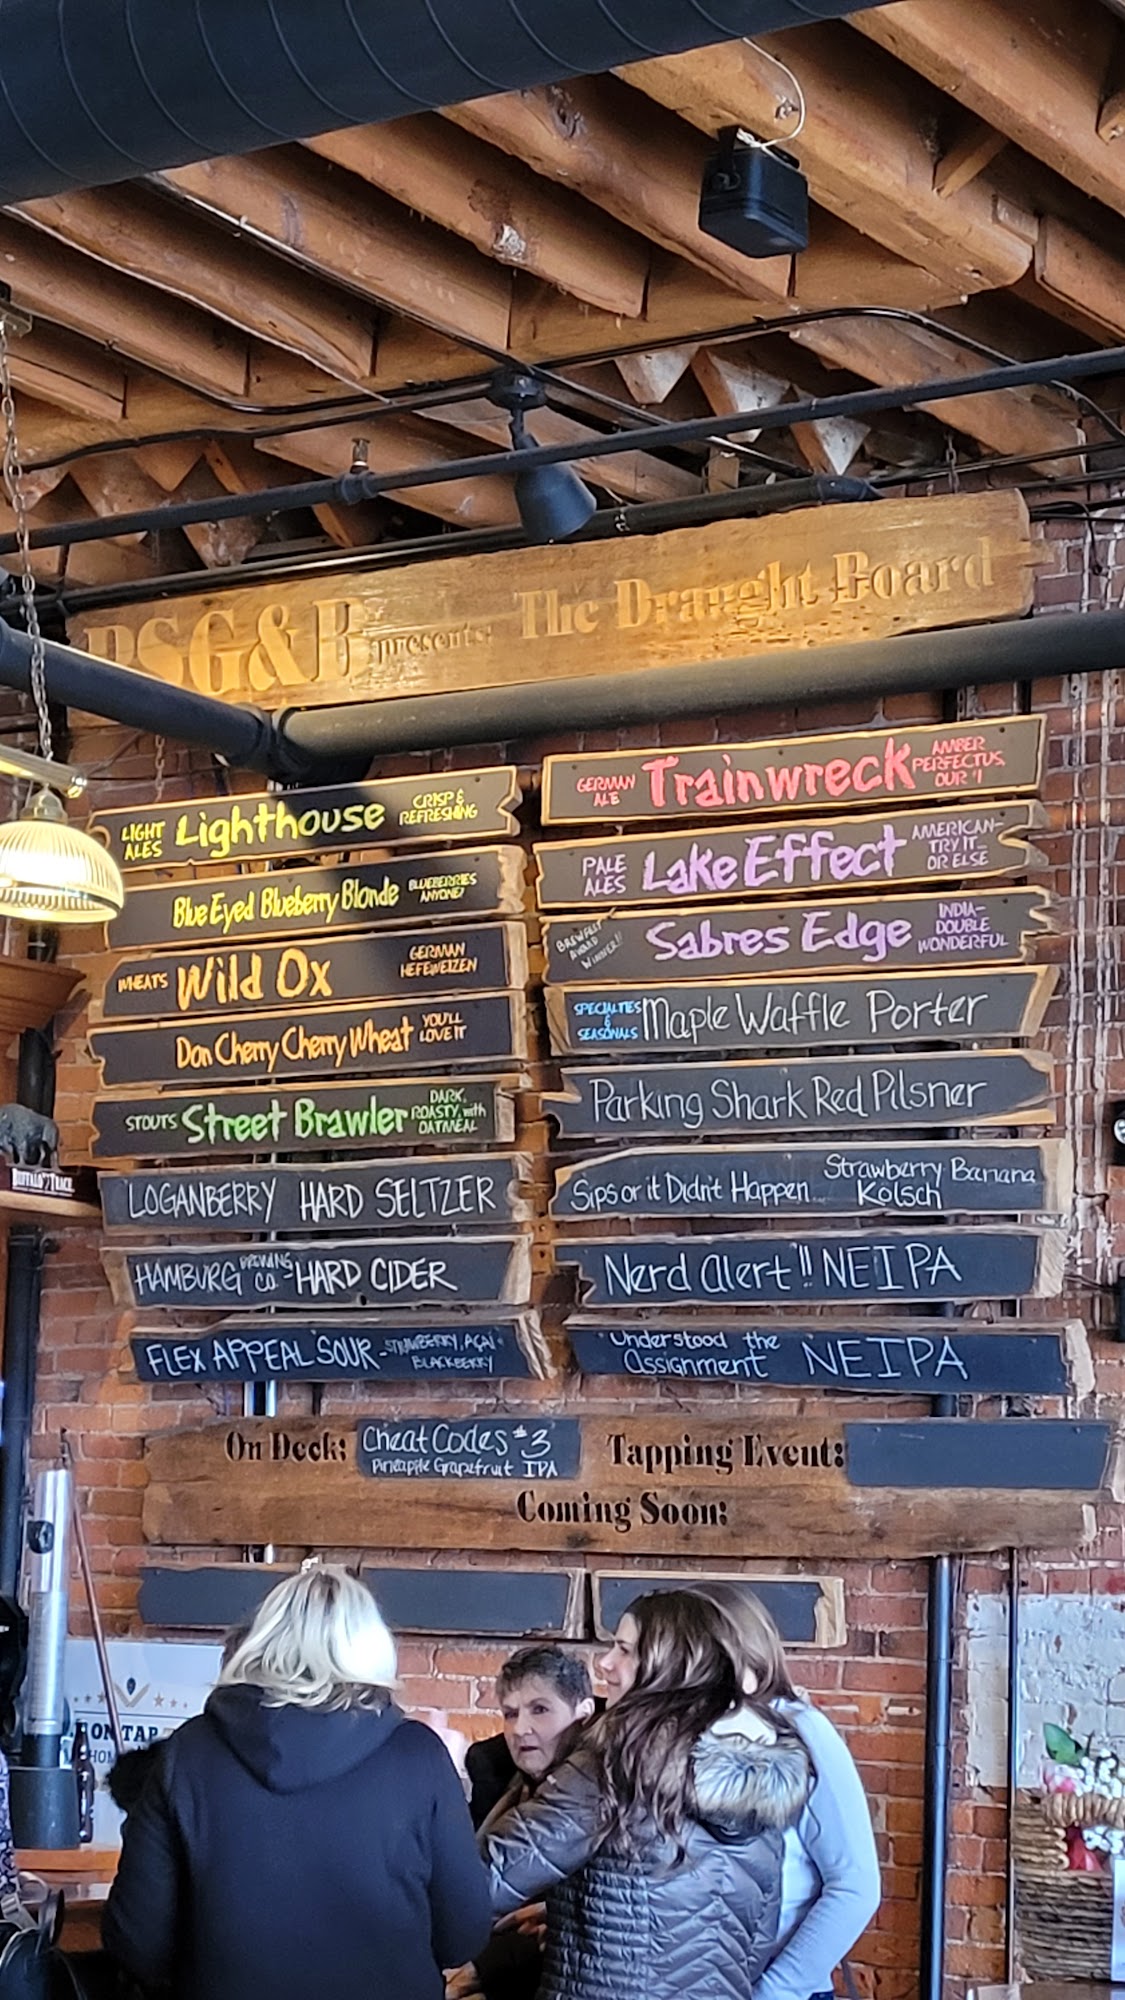 PSG&B presents: The Draught Board
LIGHT ALES Lighthouse CRISP & REFRESHING
Blue Eyed Blueberry Blonde BLUEBERRIES ANYONE?
WHEATS Wild Ox GERMAN HEFEWEIZEN
Don Cherry Cherry Wheat YOU'LL LOVE IT
STOUTS Street Brawler DARK, ROASTY, with OATMEAL
LOGANBERRY HARD SELTZER
HAMBURG BREWING CO. HARD CIDER
FLEX APPEAL SOUR - STRAWBERRY, AÇAI BLACKBERRY
GERMAN ALE Trainwreck AMBER PERFECTUS, OUR #1
PALE ALES Lake Effect AMERICAN- TRY IT... OR ELSE
BREWFEST AWARD WINNER!! Sabres Edge INDIA- DOUBLE WONDERFUL
SPECIALTIES & SEASONALS Maple Waffle Porter
Parking Shark Red Pilsner
Sips or it Didn't Happen... Strawberry Banana Kolsch
Nerd Alert!! NEIPA
Understood the Assignment NEIPA
On Deck: Cheat Codes #3 Pineapple Grapefruit IPA
Tapping Event:
Coming Soon:
BUFFALO TRACE
ON TAP